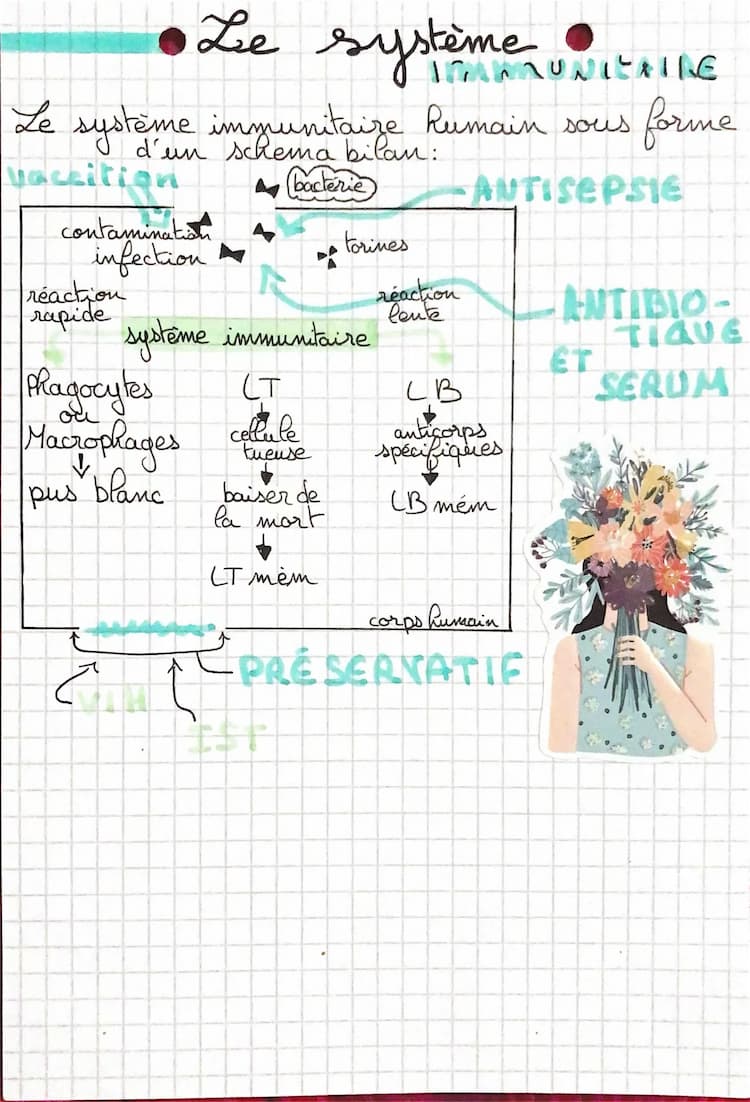 Le système
IMMUNITAIRE
Le système immunitaire humain sous forme
d'un schema bilan:
vaccition
bactérie
ANTISEPSIE
contamination
infection
torines
réaction
rapide
réaction
lente
ANTIBIO-
TIQUE
ET
SERUM
système immunitaire
Phagocytes
ou
Macrophages
pus blanc
LT
cellule
tueuse
baiser de
la mort
LT mém
LB
anticorps
spécifiques
LB mém
corps humain
PRÉSERVATIF
VIH
IST